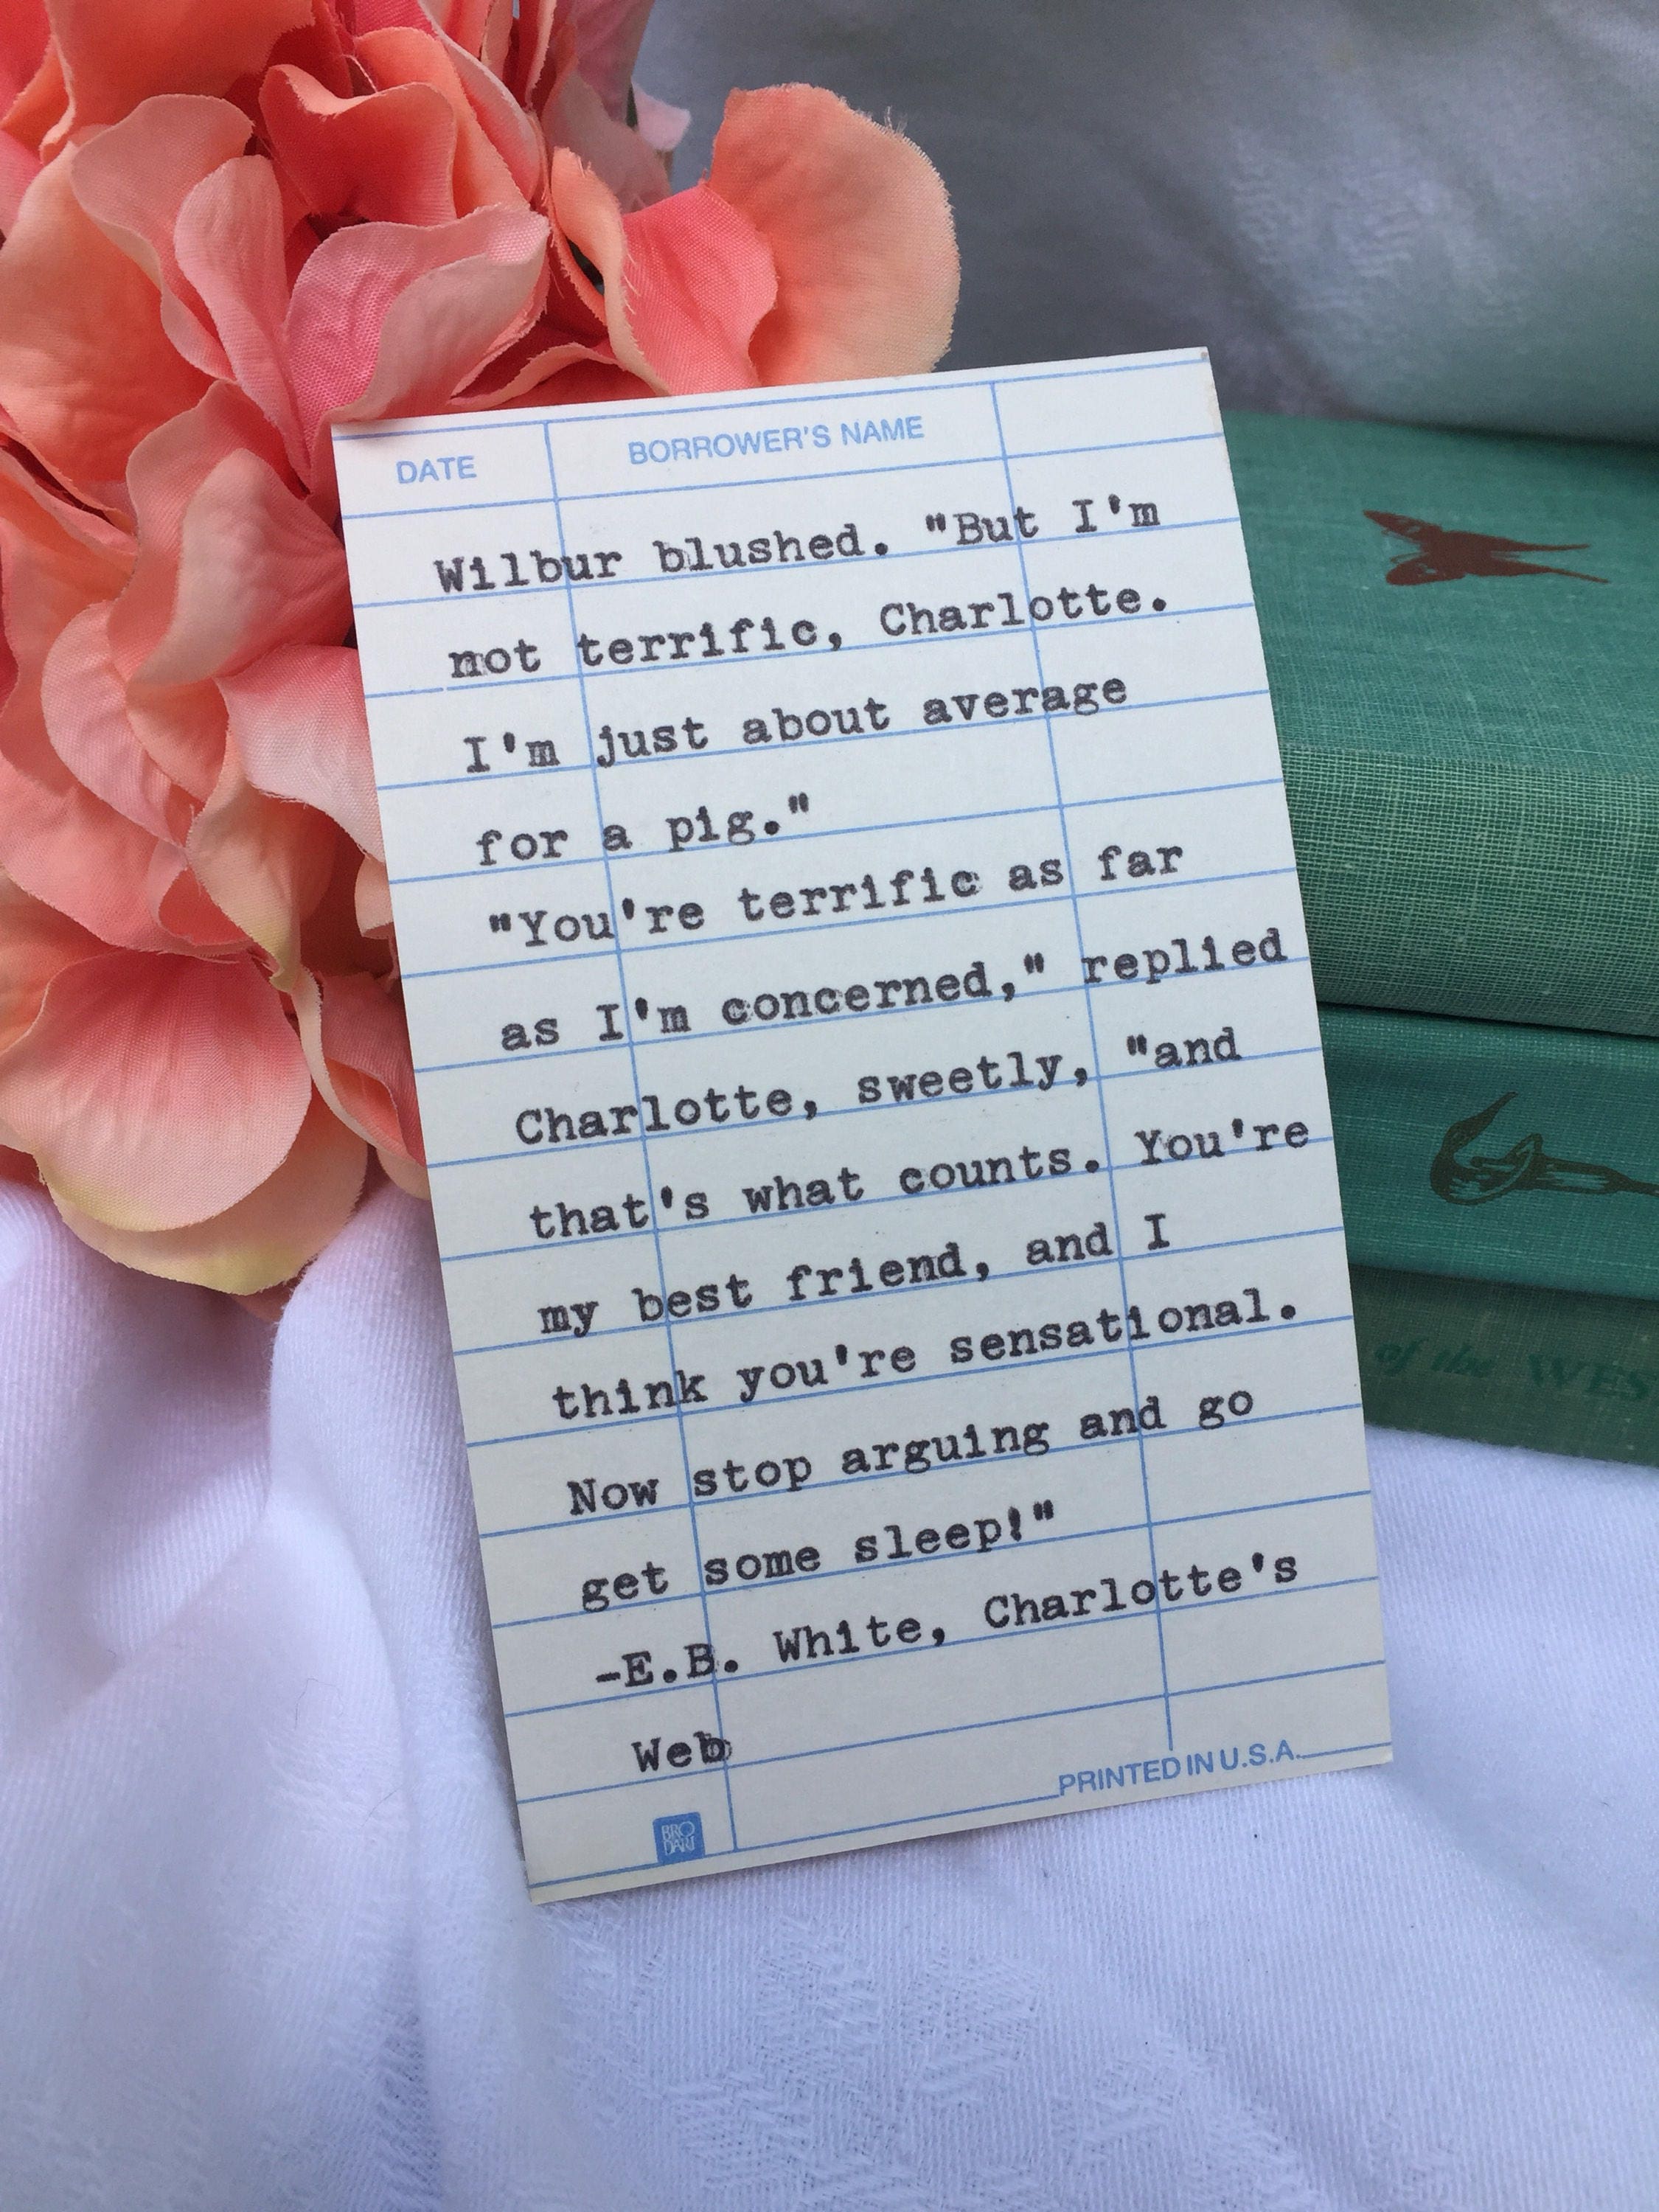 DATE BORROWER'S NAME
Wilbur blushed. "But I'm
not terrific, Charlotte.
I'm just about average
for a pig."
"You're terrific as far
as I'm concerned," replied
Charlotte, sweetly, "and
that's what counts. You're
my best friend, and I
think you're sensational.
Now stop arguing and go
get some sleep!"
-E.B. White, Charlotte's
Web
PRINTED IN U.S.A.
BRO
DART
of the WES